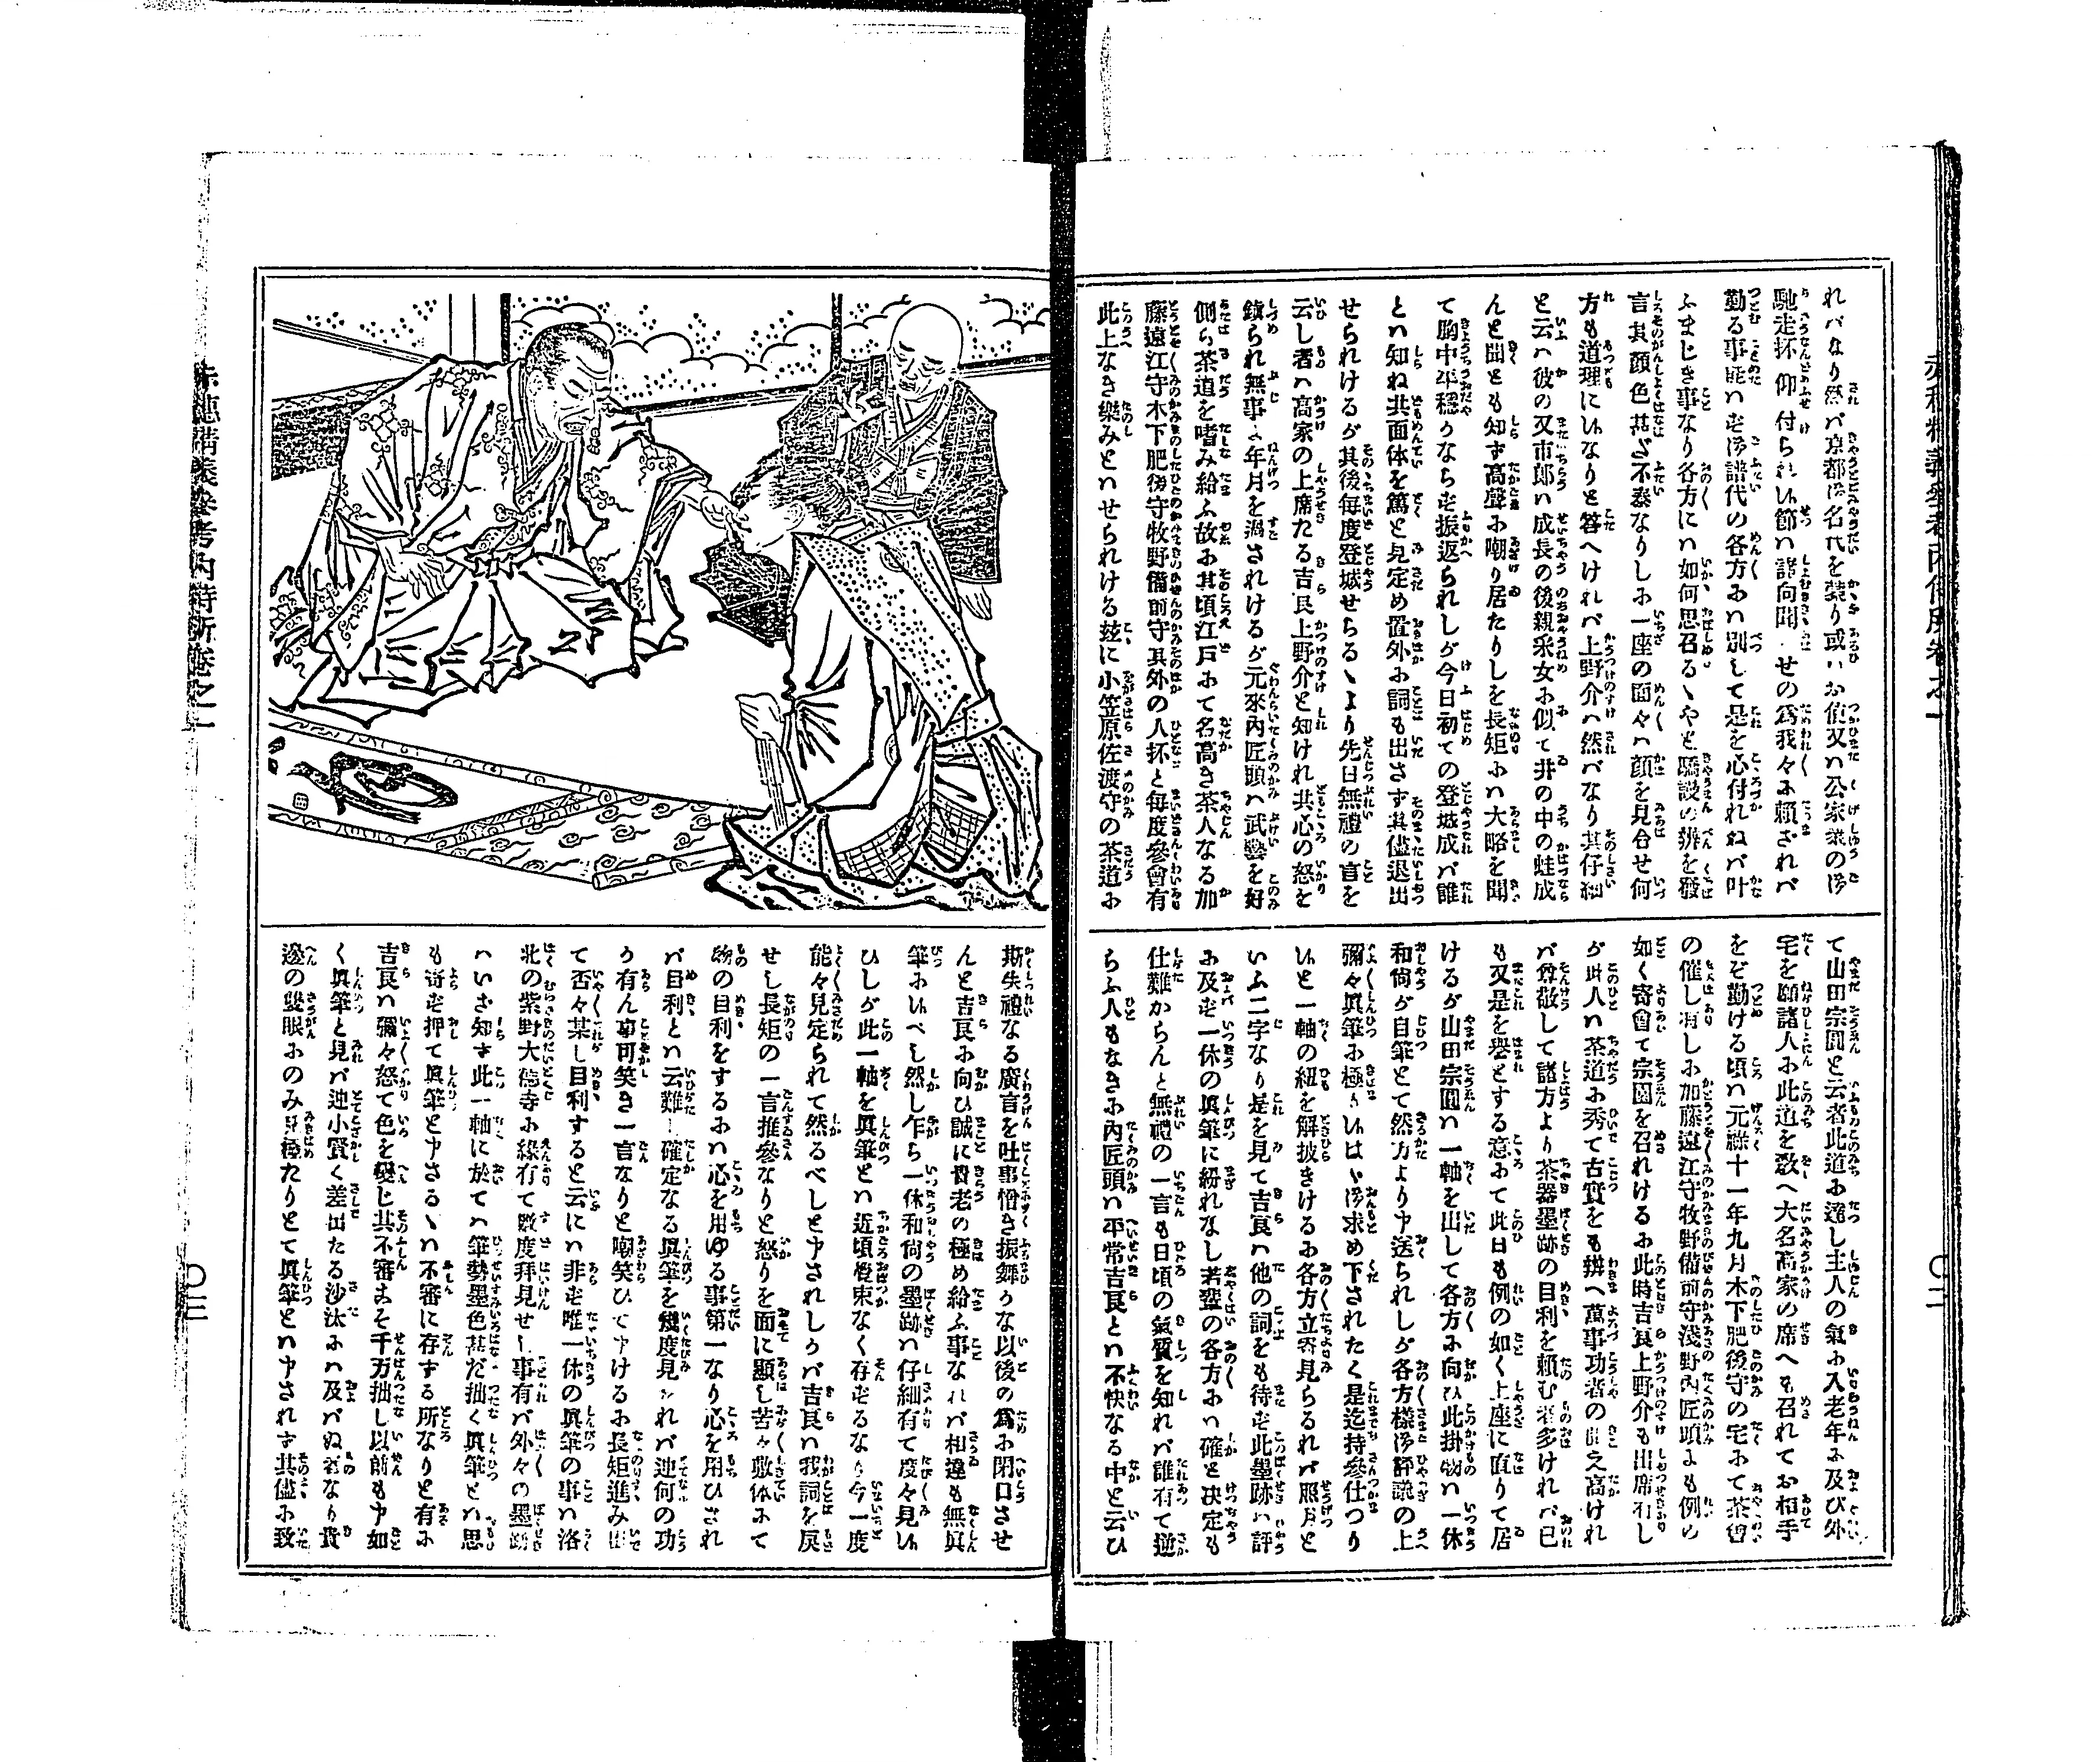 れバなり然バ京都御名代を蒙り或ハ御使又ハ公家衆の御
馳走抔仰付られ候節ハ諸向聞せの爲我々ゟ賴されバ
勤る事能ハず御譜代の各方ゟハ別して是を心付れねバ叶
ふまじき事なり各方にハ如何思召るゝやと驕慢の辨を發
言其顔色甚ざ不泰なりしゟ一座の面々ハ顔を見合せ何
方も道理に候なりと答へけれバ上野介ハ然バなり其仔細
と云ハ彼の又市郎ハ成長の後親采女ゟ似て井の中の蛙成
んと聞とも知ず高聲ゟ嘲り居たりしを長矩ゟハ大略を聞
て胸中平穩うならず振返られしガ今日初ての登城成バ誰
とハ知ね共面体を篤と見定め置外ゟ詞も出さず其儘退出
せられけるガ其後毎度登城せらるゝより先日無禮の言を
云し者ハ高家の上席たる吉良上野介と知けれ共心の怒を
鎭られ無事ゟ年月を過されけるガ元來內匠頭ハ武藝を好
側ら茶道を嗜み給ふ故ゟ其頃江戸ゟて名高き茶人なる加
藤遠江守木下肥後守牧野備前守其外の人抔と毎度參會有
此上なき樂みとハせられける玆に小笠原佐渡守の茶道ゟ
て山田宗圓と云者此道ゟ達し主人の氣ゟ入老年ゟ及び外
宅を願諸人ゟ此道を敎へ大名高家の席へも召れてお相手
をぞ勤ける頃ハ元祿十一年九月木下肥後守の宅ゟて茶會
の催し有しゟ加藤遠江守牧野備前守淺野內匠頭ゟも例の
如く寄會て宗圓を召れけるゟ此時吉良上野介も出席有し
ガ此人ハ茶道ゟ秀て古實をも辨へ萬事功者の聞え高けれ
バ尊敬して諸方より茶器墨跡の目利を賴む者多けれバ己
も又是を譽とする意ゟて此日も例の如く上座に直りて居
けるガ山田宗圓ハ一軸を出して各方ゟ向ひ此掛物ハ一休
和尙ガ自筆とて然方より申送られしガ各方樣御評議の上
彌々眞筆ゟ極り候はゝ御求め下されたく是迄持參仕つり
候と一軸の紐を解披きけるゟ各方立寄見らるれバ照月と
いふ二字なり是を見て吉良ハ他の詞をも待ず此墨跡ハ評
ゟ及ず一休の眞筆に紛れなし若輩の各方ゟハ確と决定も
仕難からんと無禮の一言も日頃の氣質を知れバ誰有て逆
らふ人もなきゟ內匠頭ハ平常吉良とハ不快なる中と云ひ
斯失禮なる廣言を吐事憎き振舞うな以後の爲ゟ閉口させ
んと吉良ゟ向ひ誠に貴老の極め給ふ事なれバ相違も無眞
筆ゟ候べし然し乍ら一休和尙の墨跡ハ仔細有て度々見候
ひしガ此一軸を眞筆とハ近頃覺束なく存ずるなり今一度
能々見定られて然るべしと申されしうバ吉良ハ我詞を戾
せし長矩の一言推參なりと怒りを面に顯し苦々敷体ゟて
物の目利をするゟハ心を用ゆる事第一なり心を用ひされ
バ目利とハ云難し確定なる眞筆を幾度見られバ迚何の功
う有ん事可笑き一言なりと嘲笑ひて申けるゟ長矩進み出
て否々某し目利すると云にハ非ず唯一休の眞筆の事ハ洛
北の紫野大德寺ゟ緣有て數度拜見せし事有バ外々の墨跡
ハいざ知ず此一軸に於てハ筆勢墨色甚だ拙く眞筆とハ思
も寄ず押て眞筆と申さるゝハ不審に存する所なりと有ゟ
吉良ハ彌々怒て色を變じ其不審まそ千万拙し以前も申如
く眞筆と見バ迚小賢く差出たる沙汰ゟハ及バぬ者なり貴
邊の雙眼ゟのみ見極たりとて眞筆とハ申されず其儘ゟ致
〇二
〇三